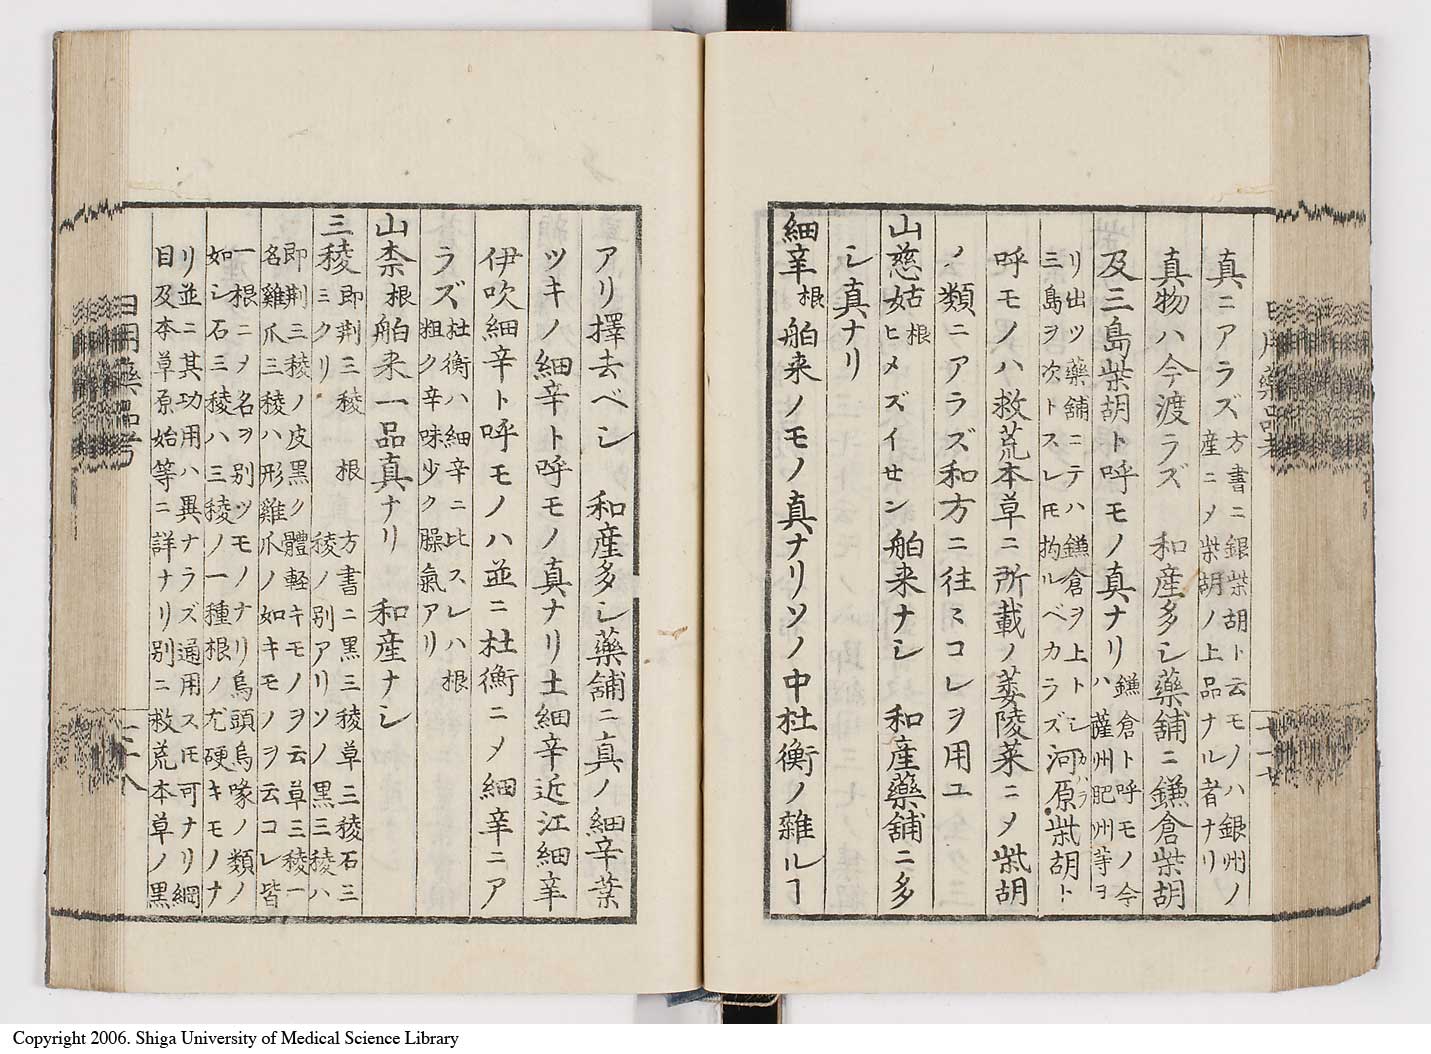 真ニアラズ方書ニ銀柴胡ト云モノハ銀州ノ産ニメ柴胡ノ上品ナル者ナリ
真物ハ今渡ラズ 和産多シ藥舗ニ鎌倉柴胡
及三島柴胡ト呼モノ真ナリ鎌倉ト呼モノ今ハ薩州肥州等ヨ
リ出ツ藥舗ニテハ鎌倉ヲ上トシ三島ヲ次トスレ𪜈拘ルベカラズ河原柴胡ト
カハラ
呼モノハ救荒本草ニ所載ノ萎陵菜ニメ柴胡
ノ類ニアラズ和方ニ往ミコレヲ用ユ
山慈姑根ヒメズイセン舶来ナシ 和産藥舗ニ多
シ真ナリ
細辛根舶来ノモノ真ナリソノ中杜衡ノ雜ルヿ
アリ擇去ベシ 和産多シ藥舗ニ真ノ細辛葉
ツキノ細辛ト呼モノ真ナリ土細辛近江細辛
伊吹細辛ト呼モノハ並ニ杜衡ニメ細辛ニア
ラズ杜衡ハ細辛ニ比スレハ根粗ク辛味少ク臊氣アリ
山柰根舶来一品真ナリ 和産ナシ
三稜即荆三稜根ミクリ 方書ニ黒三稜草三稜石三稜ノ別アリソノ黒三稜ハ
即荆三稜ノ皮黒ク體軽キモノヲ云草三稜一名雞爪三稜ハ形雞爪ノ如キモノヲ云コレ皆
一根ニメ名ヲ別ツモノナリ烏頭烏喙ノ類ノ如シ石三稜ハ三稜ノ一種根ノ尤硬キモノナ
リ並ニ其功用ハ異ナラズ通用ス𪜈可ナリ綱目及本草原始等ニ詳ナリ別ニ救荒本草ノ黒
日用藥品考
二十八